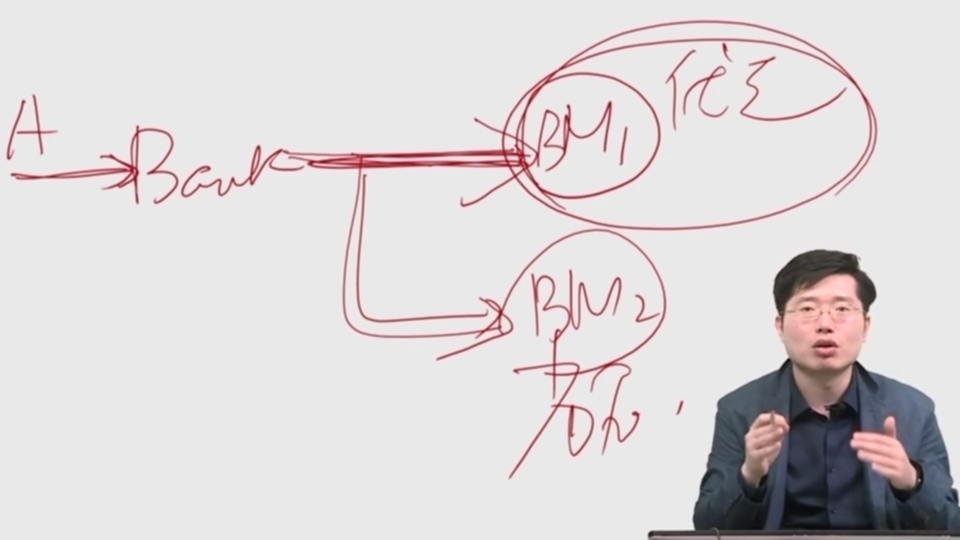 A
Bank
BM1
优先
BM2